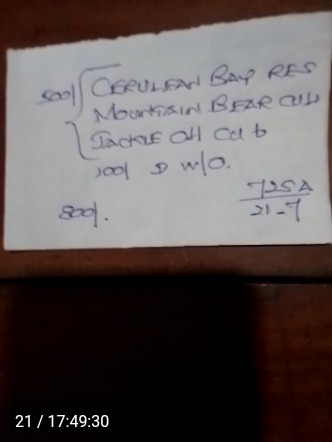 500/ CERULEAN BAY RES
MOUNTAIN BEAR CUB
JACKLE OH CUB
100/ D W/O.
725A
800/. 21-7
21 / 17:49:30